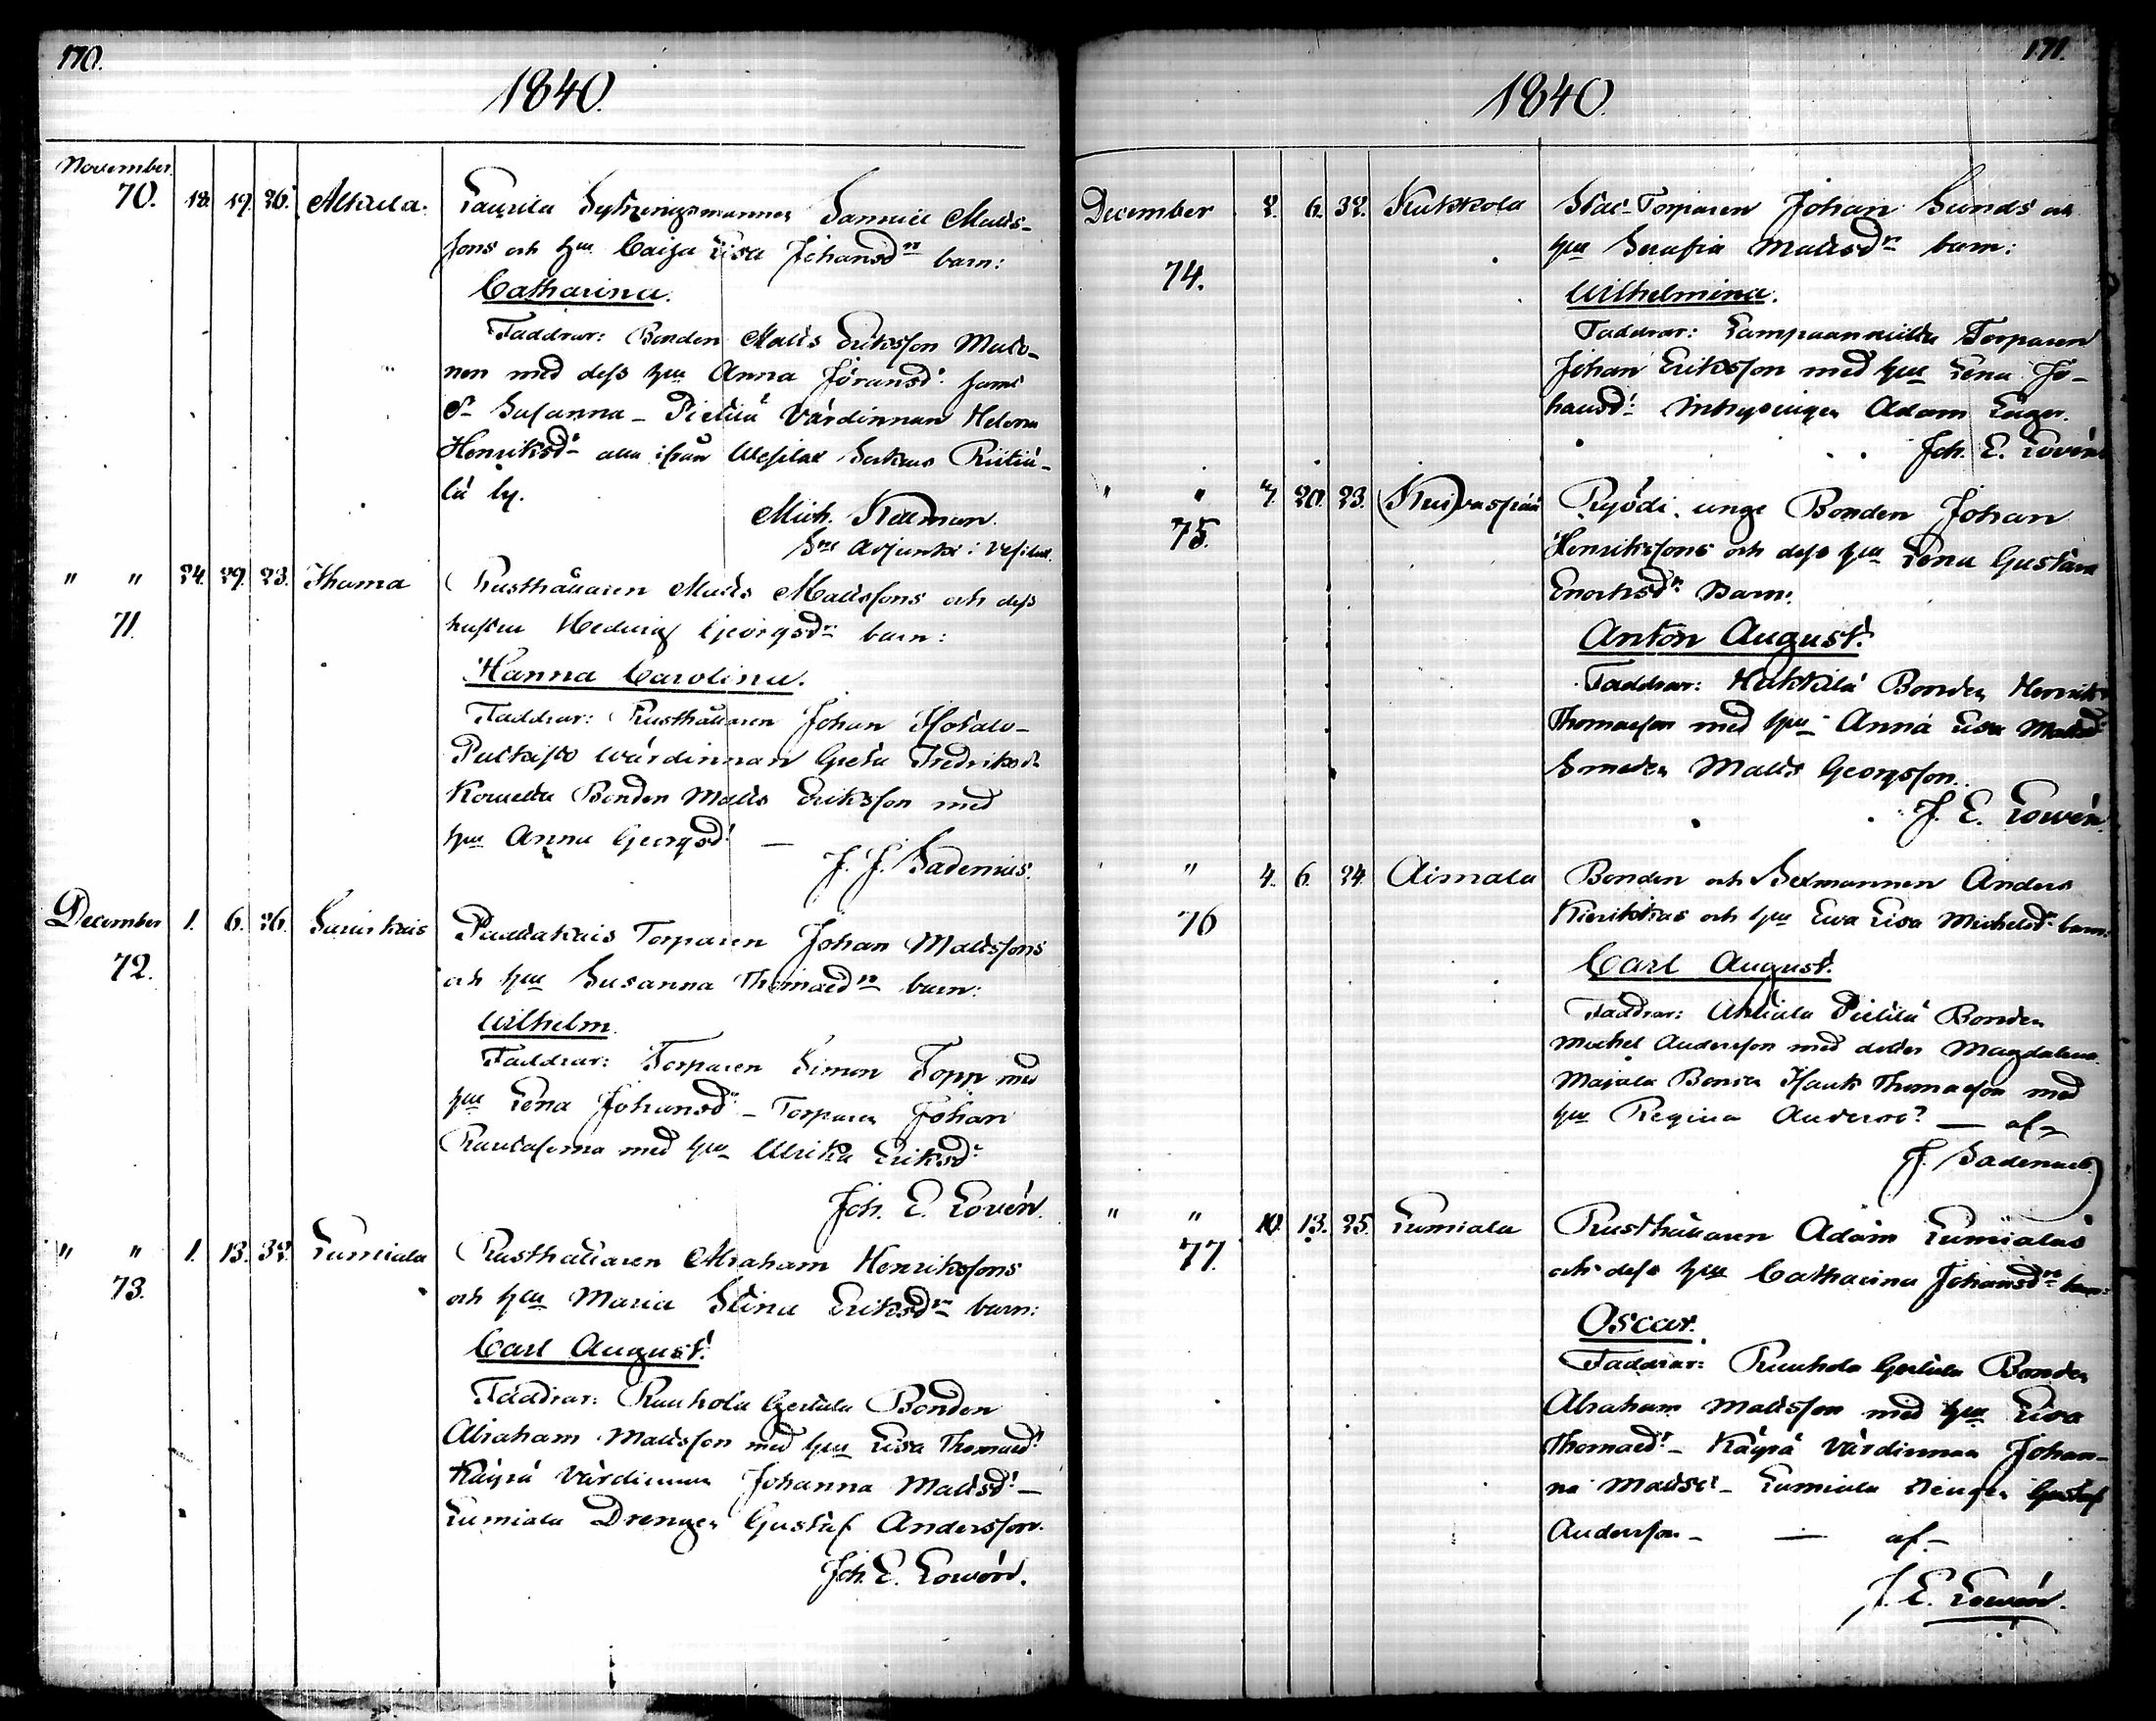 170.
1840.
November
70. 18. 19. 26. Alkula. Laurila Sytningsmannen Samuel Matts-
sons och hu Caisa Lisa Johansdr barn:
Catharina.
Faddrar: Bonden Matts Eriksson Mulo-
nen med dess hu Anna Göransdr samt
Susanna – Pietilä Värdinnan Helena
Henriksdr alla ifrån Wesilax Sockens
lä by.
Mich. Kellman.
Adjunkt i Vesilax.
" " 24. 29. 23. Thuma Rusthållaren Matts Mattssons och dess
71. hustru Hedvig Georgsdr barn:
Hanna Carolina.
Faddrar: Rusthållaren Johan
Wärdinnan Greta Fredriksdr
Bonden Matts Eriksson med
hu Anna Georgsdr —
J. J. Sadenius.
December 1. 6. 26. Torparen Johan Mattssons
72. och hu Susanna Thomaedr barn:
Wilhelm.
Faddrar: Torparen Simon Topp med
hu Lena Johansdr – Torparen Johan
med hu Ulrika Eriksdr
Joh. E. Lovén.
" " 1. 13. 32. Lumiala Rusthållaren Abraham Henrikssons
73. och hu Maria Stina Eriksdr barn:
Carl August.
Faddrar: Ruuhola Gertula Bonden
Abraham Mattsson med hu Lisa Thomaedr
Käyrä Värdinnan Johanna Mattsdr —
Lumiala Drengen Gustaf Andersson.
Joh. E. Lowén.
171.
1840.
December 2. 6. 32. Kukkola Stat-Torparen Johan Sunds och
hu Serafia Mattsdr barn:
74.
Wilhelmina.
Faddrar: Torparen
Johan Eriksson med hu Lena Jo-
hansdr Inhysingen Adam Lager.
Joh. E. Lovén
" " 7. 20. 23. (Kui)vaspää Pryödi unge Bonden Johan
75. Henrikssons och dess hu Lena Gustava
Enochsdr Barn:
Anton August.
Faddrar: Hakkila Bonden Henrik
Thomasson med hu Anna Lisa Mattsdr
Smeden Matts Georgsson.
J. E. Lowén.
" 4. 6. 24. Aimala Bonden och Sexmannen Anders
76 Kierikkas och hu Eva Lisa Michelsdr barn:
Carl August.
Faddrar: Anttila Pietilä Bonden
Michel Andersson med dotter Magdalena
Majala Bonden Thomasson med
hu Regina Andersdr — af
J. Sadenius
" " 10. 13. 25. Lumiala Rusthållaren Adam Lumialas
77. och dess hu Catharina Johansdr barn:
Oscar.
Faddrar: Ruuhola Gertula Bonden
Abraham Mattsson med hu Lisa
Thomaedr – Käyrä Värdinnan Johan-
na Mattsdr – Lumiala Drengen Gustaf
Andersson – — af –
J. E. Lowén.